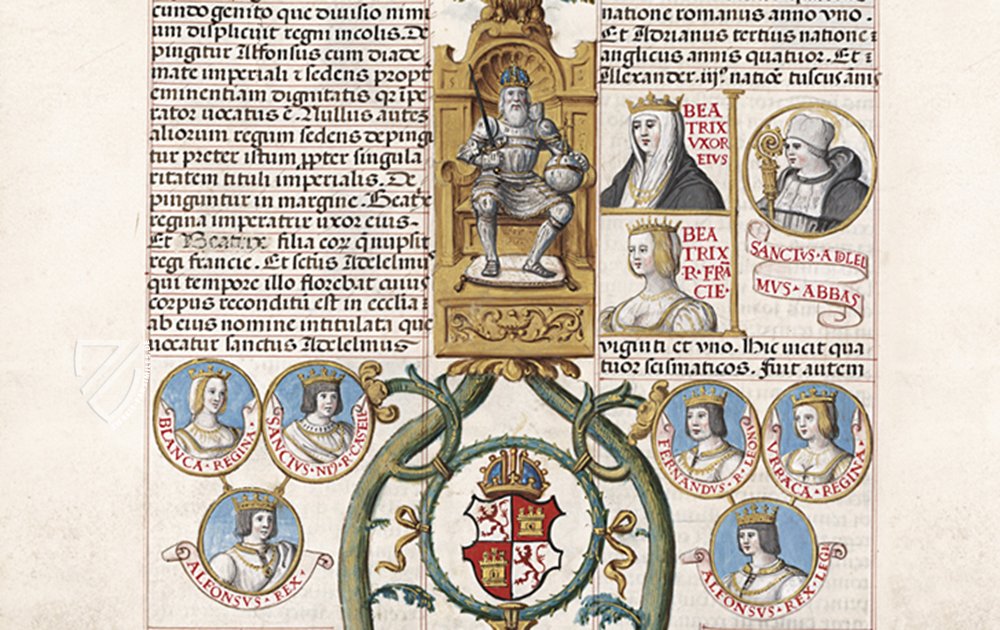 cundo genito que divisio nimi
um displicuit regni incolis. De
pingitur Alfonsus cum diade
mate imperiali ⁊ sedens propt
eminentiam dignitatis qr ipe
rator vocatus e. Nullus autez
aliorum regum sedens depingi
tur preter istum ppter singula
ritatem tituli imperialis. De
pinguntur in margine. Beatx
regina imperatrix uxor eius.
Et Beatrix filia eor q nupsit
regi francie. Et sctus Adelelmus
qui tempore illo florebat cuius
corpus reconditū est in ecclia
ab eius nomine intitulata que
vocatur sanctus Adelelmus
natione romanus anno vno.
Et Adrianus tertius natione
anglicus annis quatuor. Et
Alexander .iijs. natiōe tuscus ānis
BEA
TRIX
VXOR
EIVS
BEA
TRIX
R. FRĀ
CIE
SANCTVS ADLEL
MVS ABBAS
viginti et vno. Hic vicit qua
tuor scismaticos. Fuit autem
BLANCA REGINA
SANCTIVS R CASELE
ALFONSVS REX
FERNANDVS R LEGIO
VRRACA REGINA
ALFONSVS REX LEGI